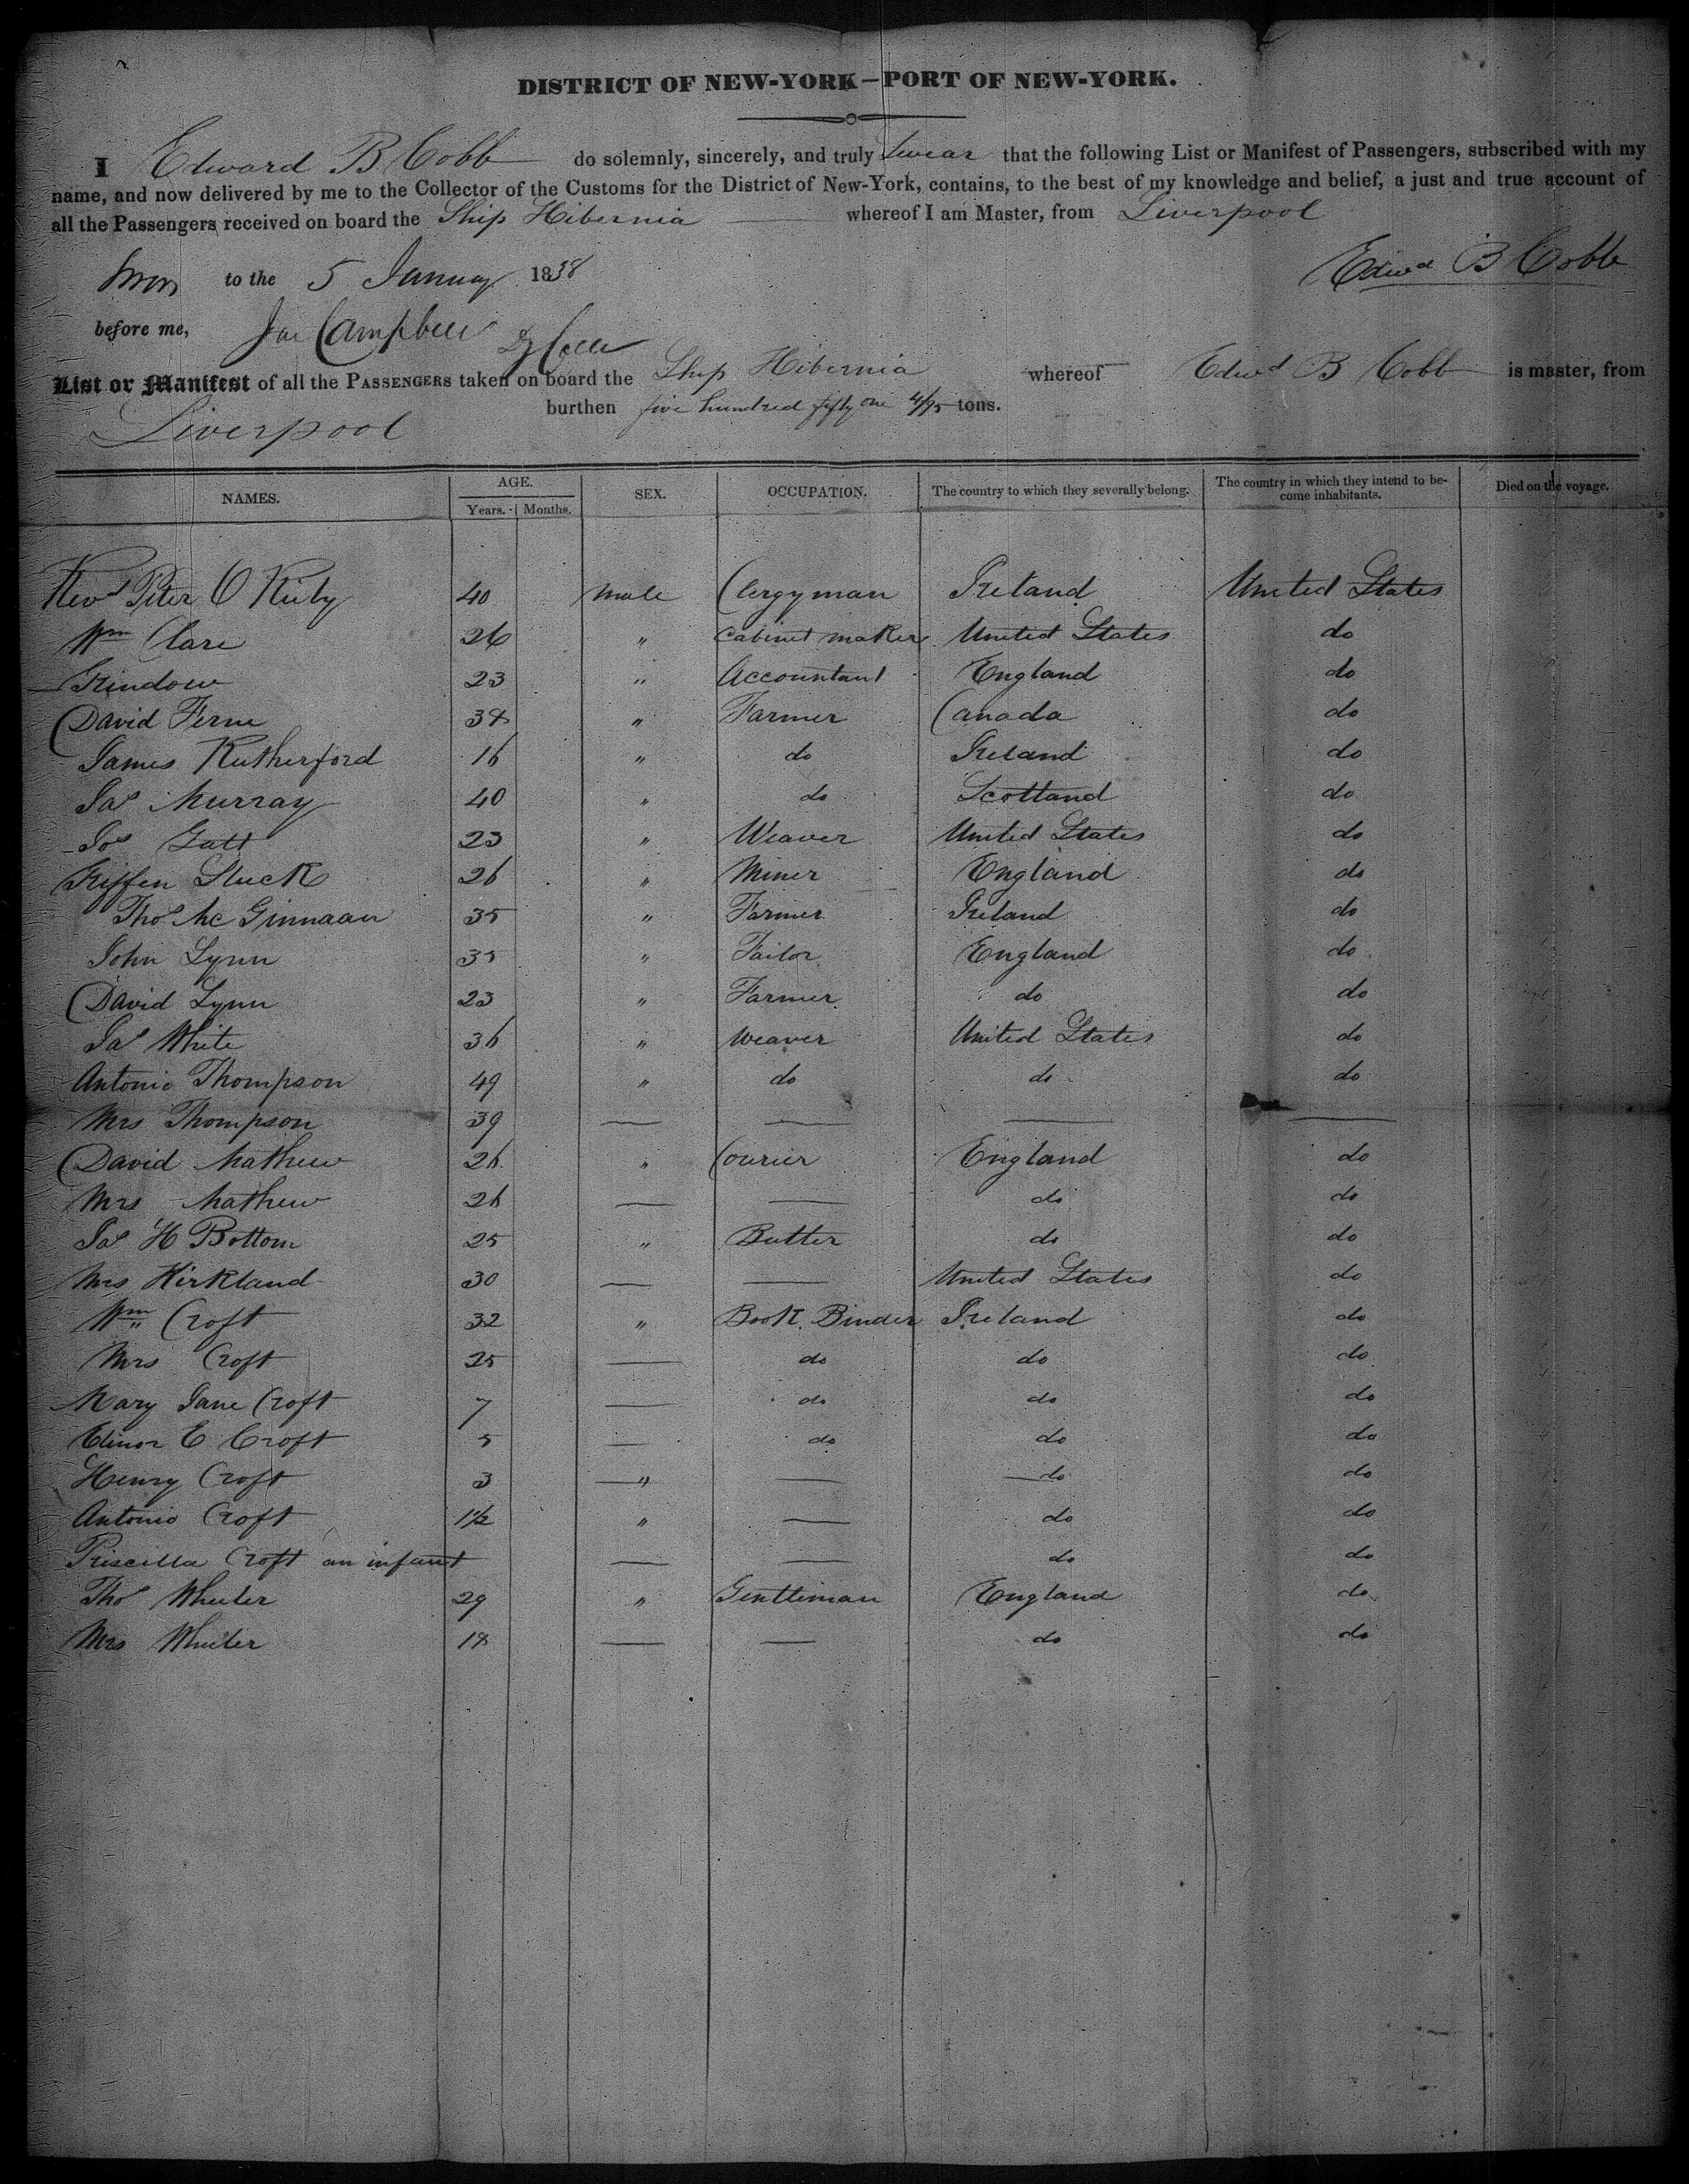 DISTRICT OF NEW-YORK—PORT OF NEW-YORK.
I Edward B Cobb do solemnly, sincerely, and truly Swear that the following List or Manifest of Passengers, subscribed with my
name, and now delivered by me to the Collector of the Customs for the District of New-York, contains, to the best of my knowledge and belief, a just and true account of
all the Passengers received on board the Ship Hibernia whereof I am Master, from Liverpool
Edwd B Cobb
Sworn to the 5 January 1838
before me, Jas Campbell Dy Coll
List or Manifest of all the PASSENGERS taken on board the Ship Hibernia whereof Edwd B Cobb is master, from
Liverpool burthen five hundred fifty one 4/95 tons.
NAMES. AGE. Years. Months. SEX. OCCUPATION. The country to which they severally belong. The country in which they intend to become inhabitants. Died on the voyage.
Revd Peter 40 male Clergyman Ireland United States
Wm Clare 26 " Cabinet maker United States do
23 " Accountant England do
David Ferne 38 " Farmer Canada do
James Rutherford 16 " do Ireland do
Jas Murray 40 " do Scotland do
Jos Gatt 23 " Weaver United States do
Giffen Stuck 26 " Miner England do
Thos Mc Ginnaan 35 " Farmer Ireland do
John Lynn 35 " Tailor England do
David Lynn 23 " Farmer do do
Jas White 36 " Weaver United States do
Antonio Thompson 49 " do do do
Mrs Thompson 39 — — — —
David Mathew 26 " Courier England do
Mrs Mathew 26 — — do do
Jas H Bottom 25 " Butler do do
Mrs Kirkland 30 — — United States do
Wm Croft 32 " Book Binder Ireland do
Mrs Croft 25 — do do do
Mary Jane Croft 7 — do do do
Elinor E Croft 5 — do do do
Henry Croft 3 —" — do do
Antonio Croft 1½ " — do do
Priscilla Croft an infant — — do do
Thos Wheeler 29 " Gentleman England do
Mrs Wheeler 18 — — do do